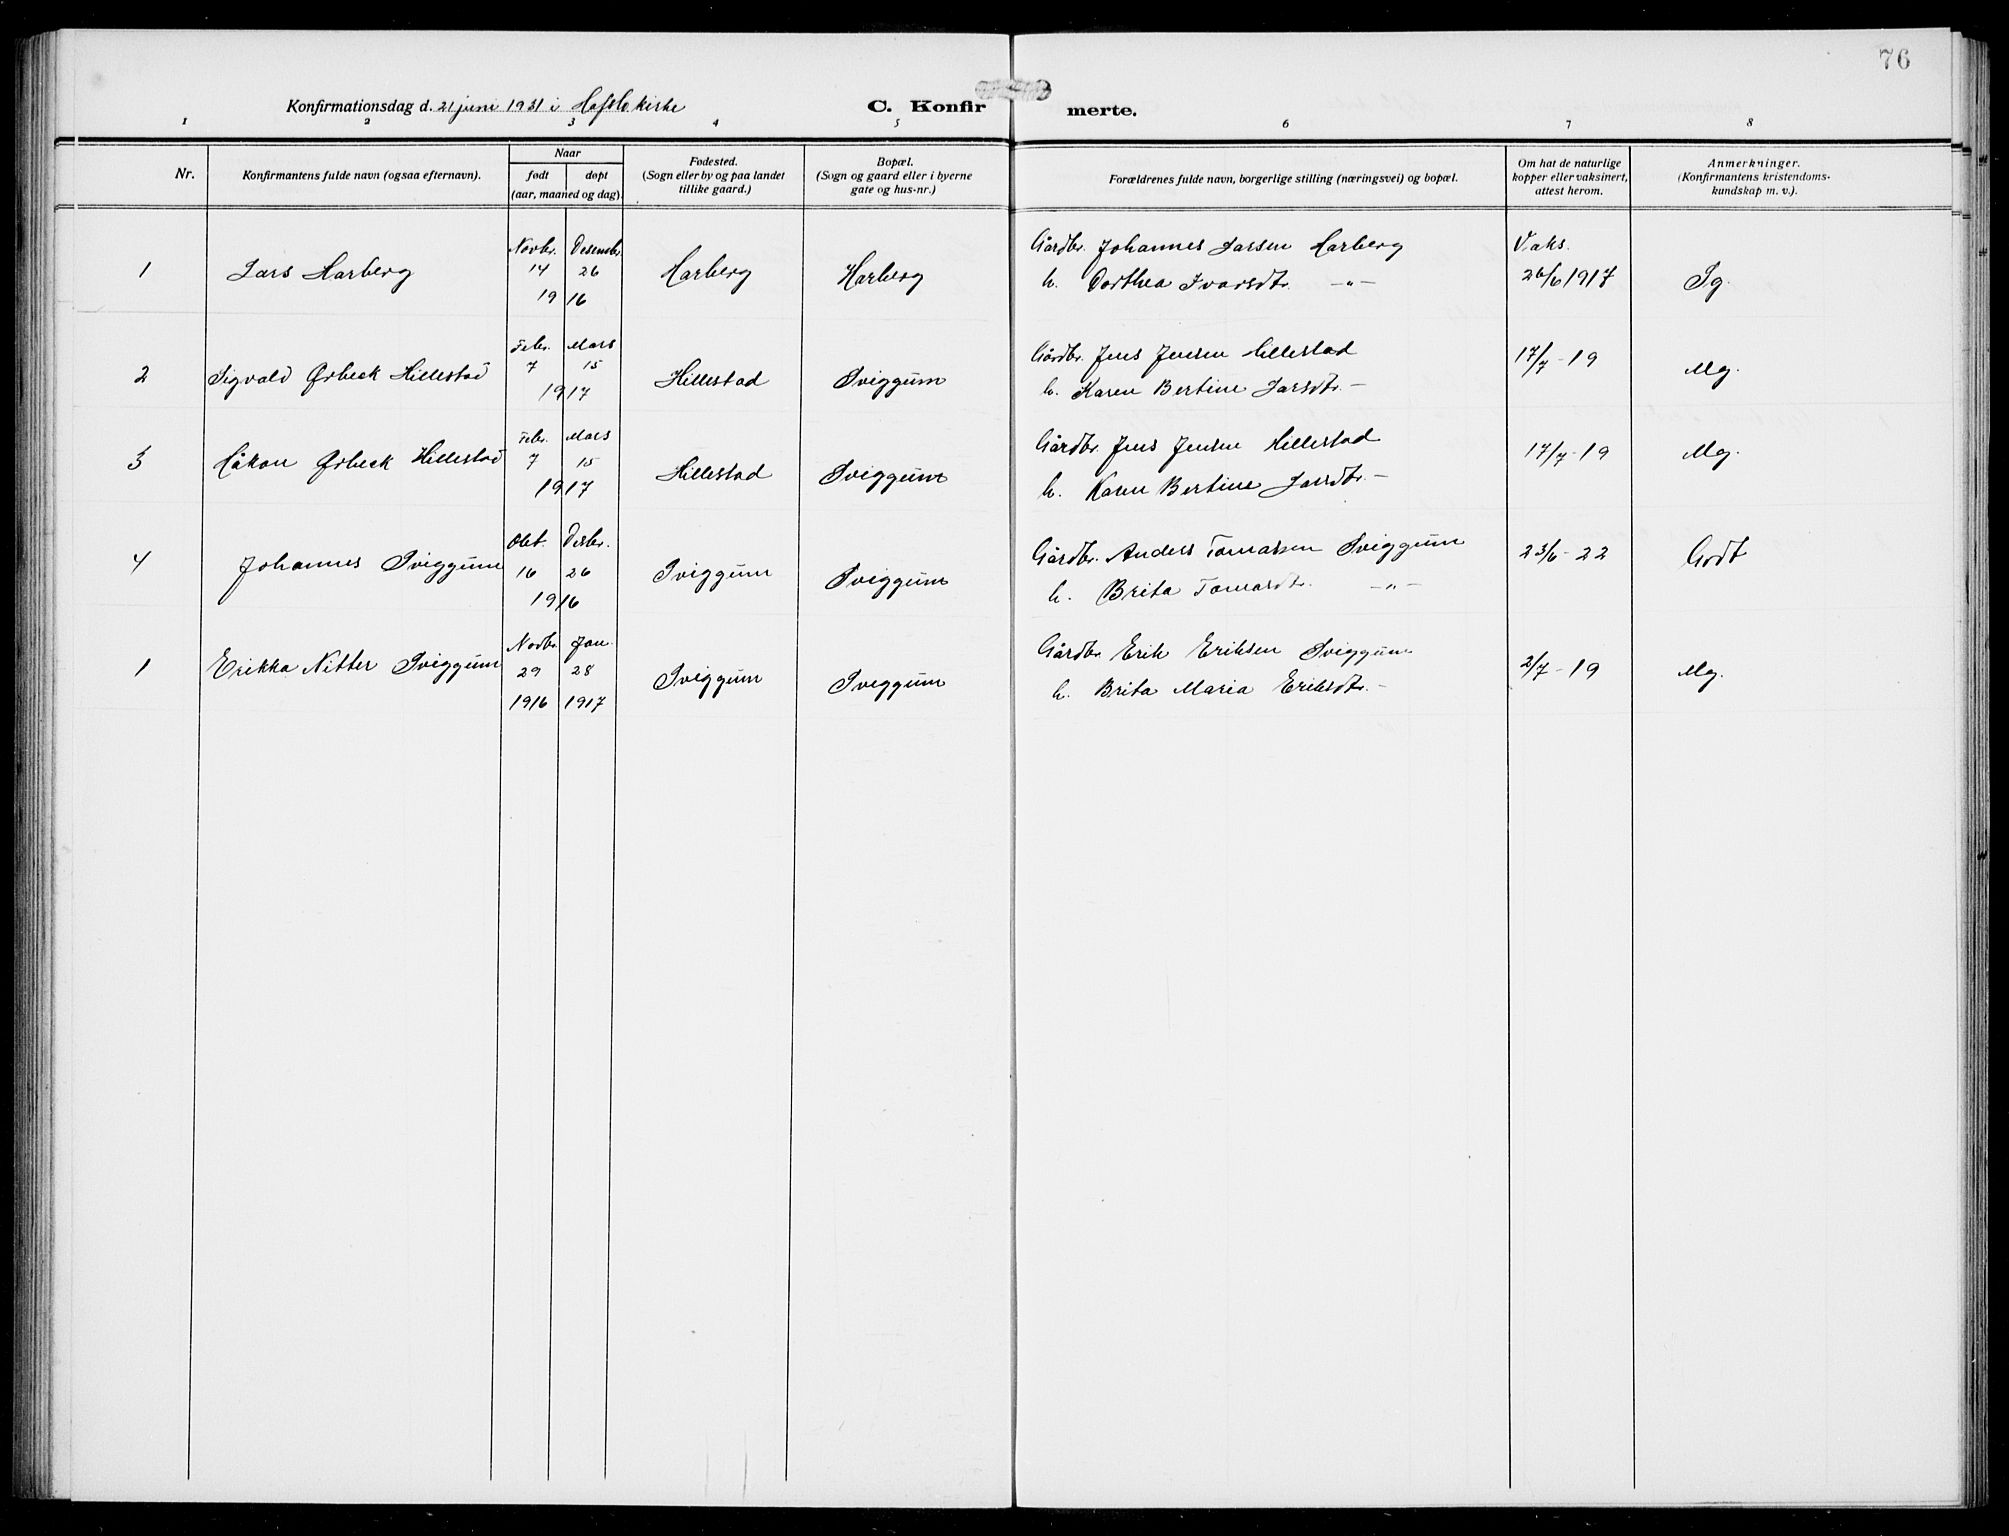 76
Konfirmationsdag d. 21 juni 1931 i Hafslo kirke
C. Konfirmerte.
1 2 3 4 5 6 7 8
Nr.
Konfirmantens fulde navn (ogsaa efternavn).
Naar
født døpt
(aar, maaned og dag).
Fødested.
(Sogn eller by og paa landet
tillike gaard.)
Bopæl.
(Sogn og gaard eller i byerne
gate og hus-nr.)
Forældrenes fulde navn, borgerlige stilling (næringsvei) og bopæl.
Om hat de naturlige
kopper eller vaksinert,
attest herom.
Anmerkninger.
(Konfirmantens kristendoms-
kundskap m. v.).
Novbr. Desembr. Gårdbr. Johannes Larsen Harberg Vaks.
1 Lars Harberg 14 26 Harberg Harberg h. Dorthea Ivarsdtr. -"- 26/6 1917 Sg.
1916
Febr. Mars Gårdbr. Jens Jensen Hillestad 17/7-19
2 Sigvald Ørbeck Hillestad 7 15 Hillestad Sviggum h. Karen Bertine Larsdtr. - Mg.
1917
Febr. Mars Gårdbr. Jens Jensen Hillestad 17/7-19 Mg.
3 Håkon Ørbeck Hillestad 7 15 Hillestad Sviggum h. Karen Bertine Larsdtr. -
1917
Okt. Desbr. Gårdbr. Anders Tomassen Sviggum 23/6-22 Godt
4 Johannes Sviggum 16 26 Sviggum Sviggum h. Brita Tomasdtr. -"-
1916
Novbr. Jan. Gårdbr. Erik Eriksen Sviggum 2/7-19
1 Erikka Nitter Sviggum 29 28 Sviggum Sviggum h. Brita Maria Eriksdtr. - Mg.
1916 1917